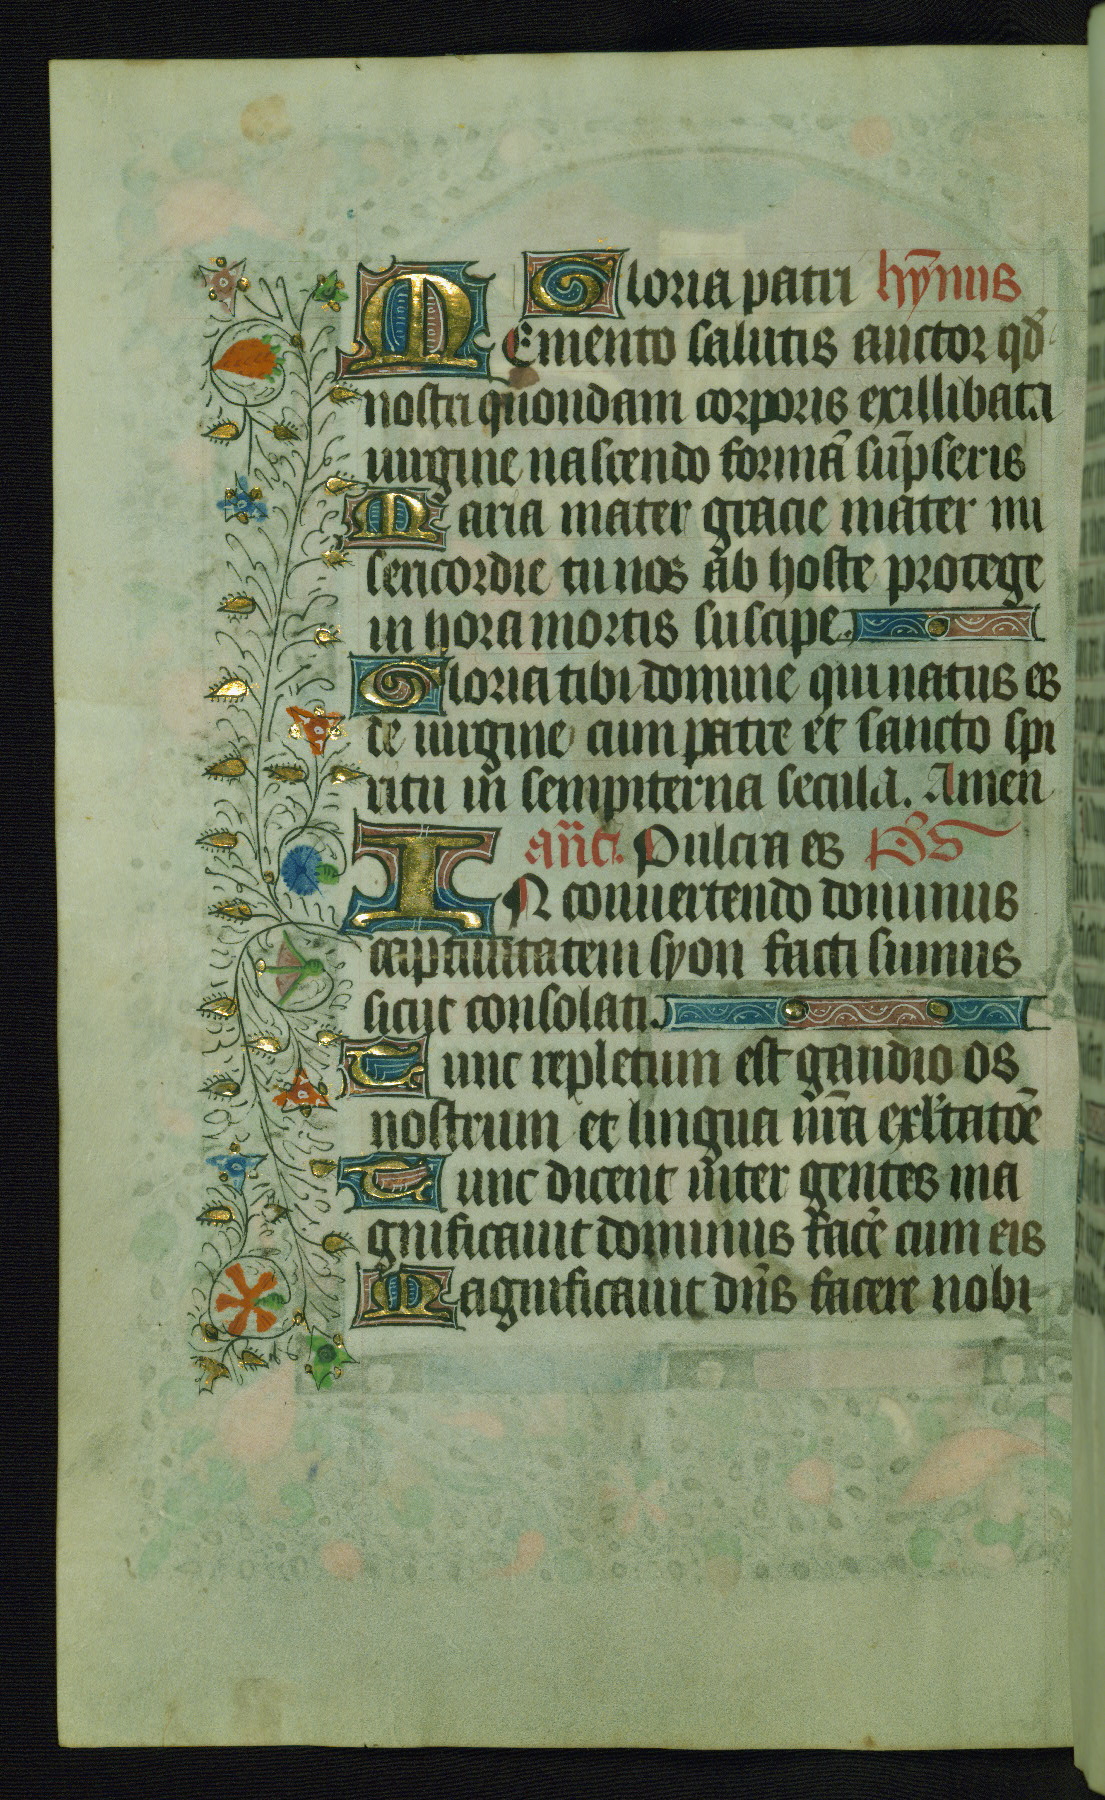 Gloria patri hȳnus
MEmento salutis auctor qd̛
nostri quondam corporis ex illibata
uirgine nascendo formā sūpseris
Maria mater gracie mater mi
sericordie tu nos ab hoste protege
in hora mortis suscipe.
Gloria tibi domine qui natus es
de uirgine cum patre et sancto spi
ritu in sempiterna secula. Amen
an̄a. Pulcra es p̄s
IN conuertendo dominus
captiuitatem syon facti sumus
sicut consolati.
Tunc repletum est gaudio os
nostrum et lingua nr̄a exl̛tatōe
Tunc dicent inter gentes ma
gnificauit dominus facē cum eis
Magnificauit dn̄s facere nobi